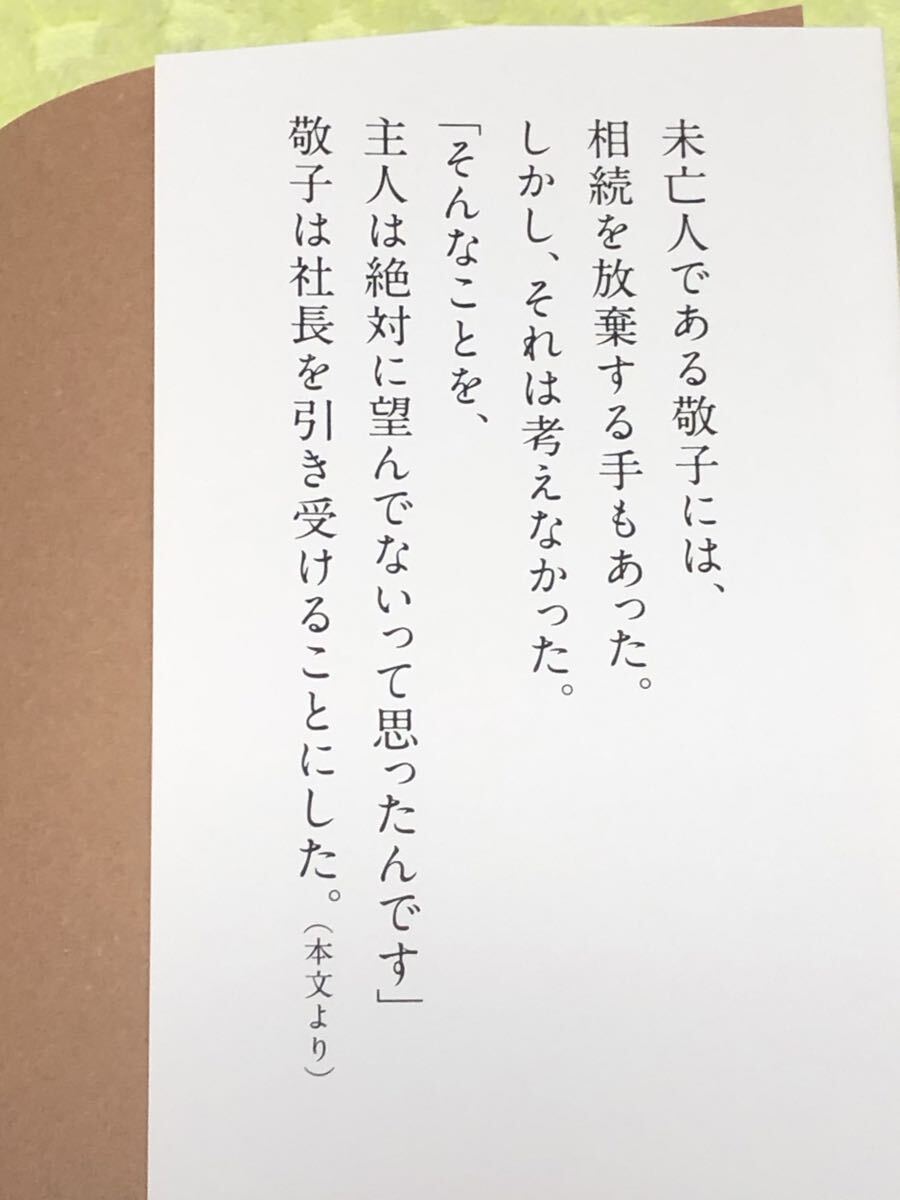 未亡人である敬子には、
相続を放棄する手もあった。
しかし、それは考えなかった。
「そんなことを、
主人は絶対に望んでないって思ったんです」
敬子は社長を引き受けることにした。（本文より）